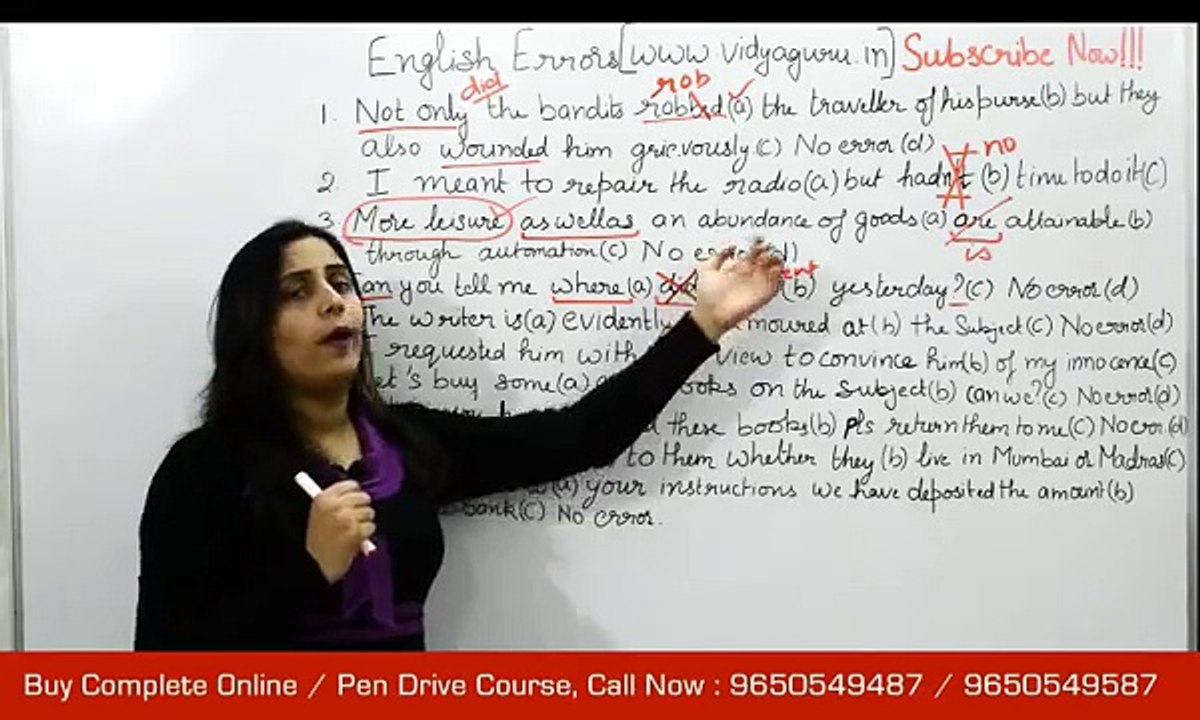 English Errors[www vidyaguru.in] Subscribe Now!!!
did rob
1. Not only the bandits robbed (a) the traveller of his purse(b) but they
also wounded him grievously.(c) No error(d)
no
2. I meant to repair the radio(a) but hadn't (b) time to do it(c)
3. More leisure as well as an abundance of goods(a) are attainable(b)
is
through automation(c) No
an you tell me where(a) (b) yesterday?(c) No error(d)
The writer is(a) evidently moured at(b) the Subject(c) No error(d)
I requested him with view to convince him(b) of my innocence(c)
et's buy some(a) ooks on the subject(b) can we?(c) No error(d)
these books(b) pls return them to me(c) No error.(d)
to them whether they (b) live in Mumbai or Madras(c)
(a) your instructions we have deposited the amount(b)
bank(c) No error.
Buy Complete Online / Pen Drive Course, Call Now : 9650549487 / 9650549587